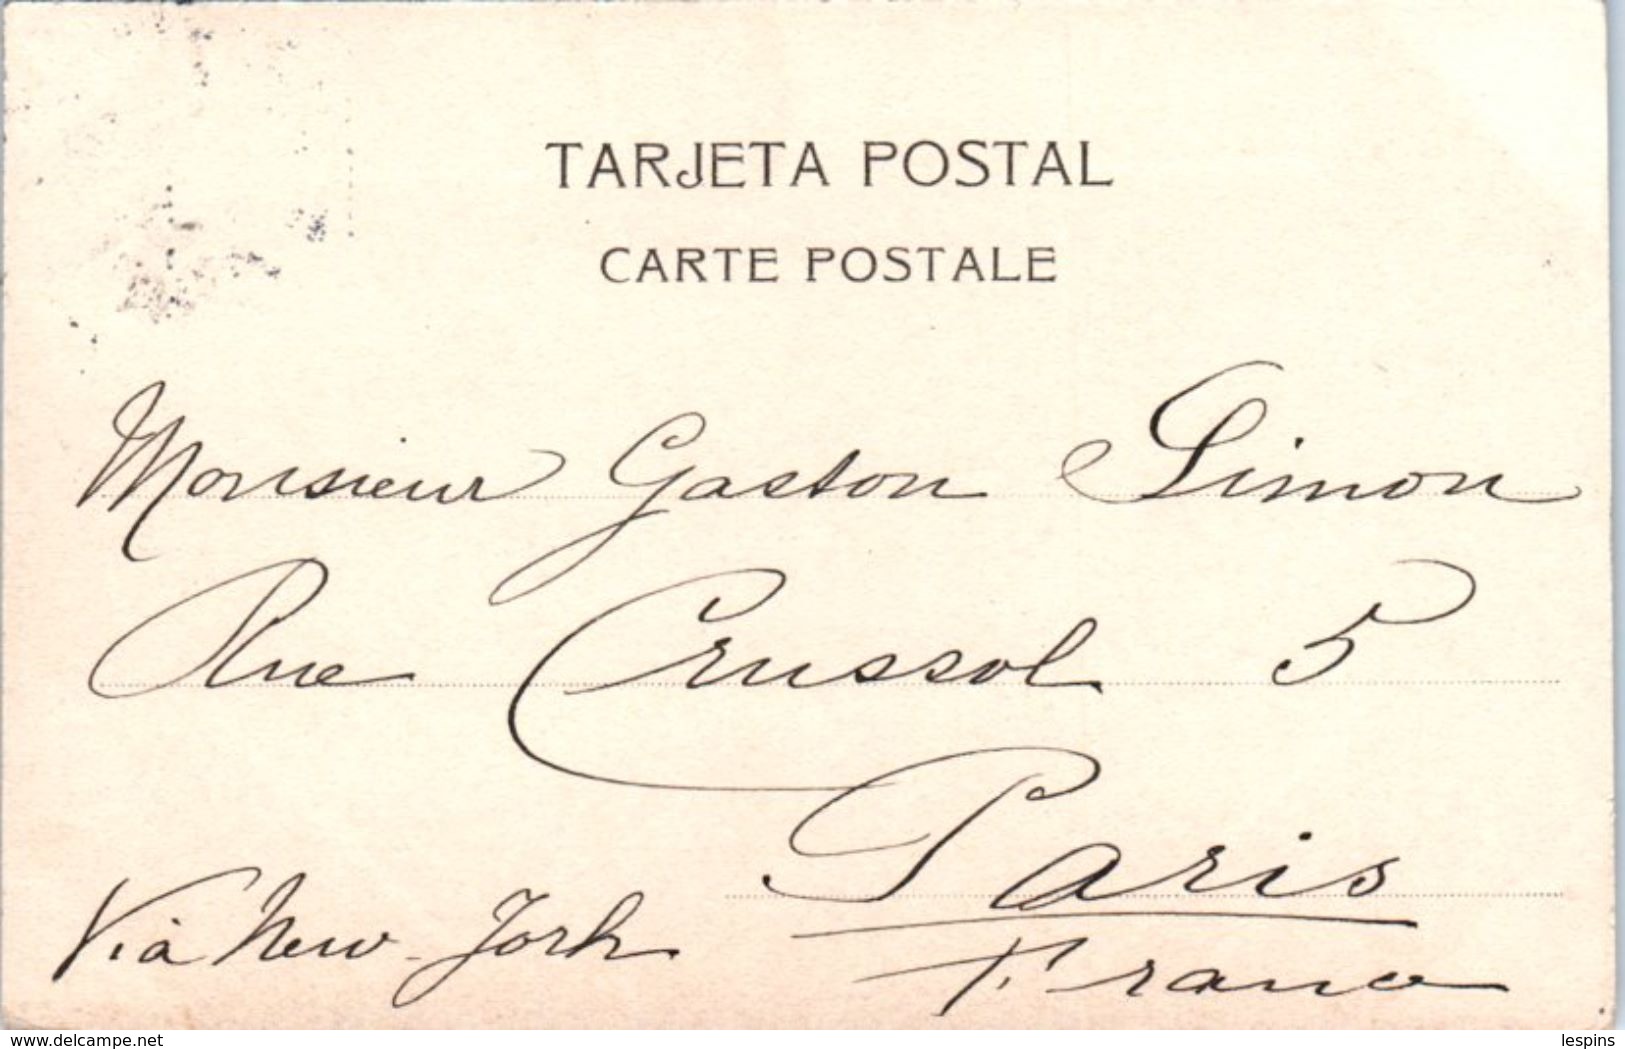 TARJETA POSTAL
CARTE POSTALE
Monsieur Gaston Simon
Rue Crussol 5
Paris
France
Via New-York
delcampe.net
lespins